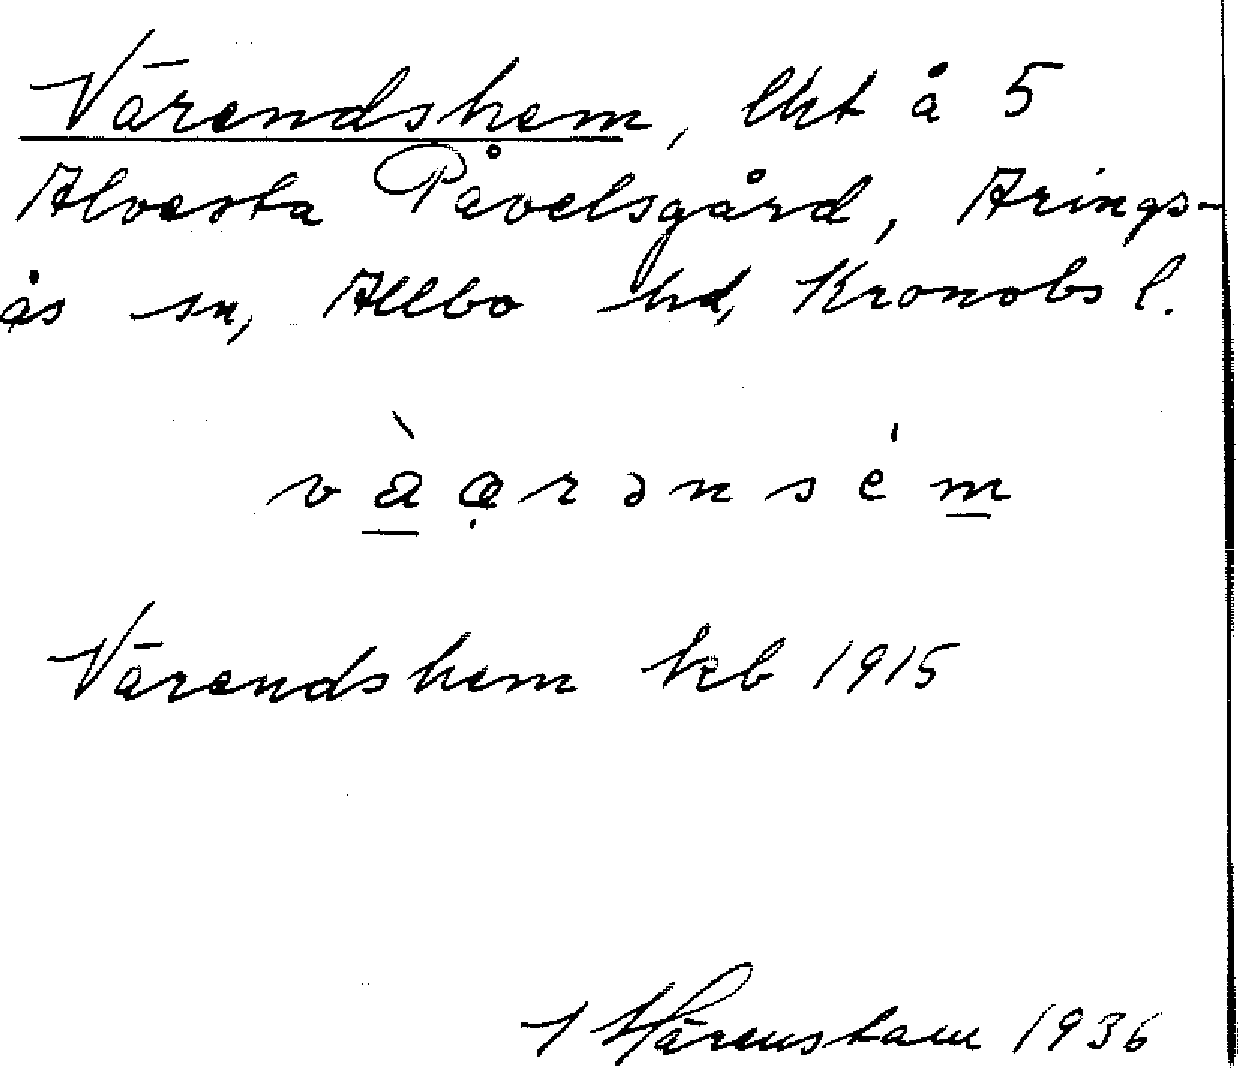 Värendshem, lht å 5
Alvesta Påvelsgård, Arings-
ås sn, Allbo hd, Kronobs l.
v à a̤ r ə n s é m
Värendshem kb 1915
Härenstam 1936